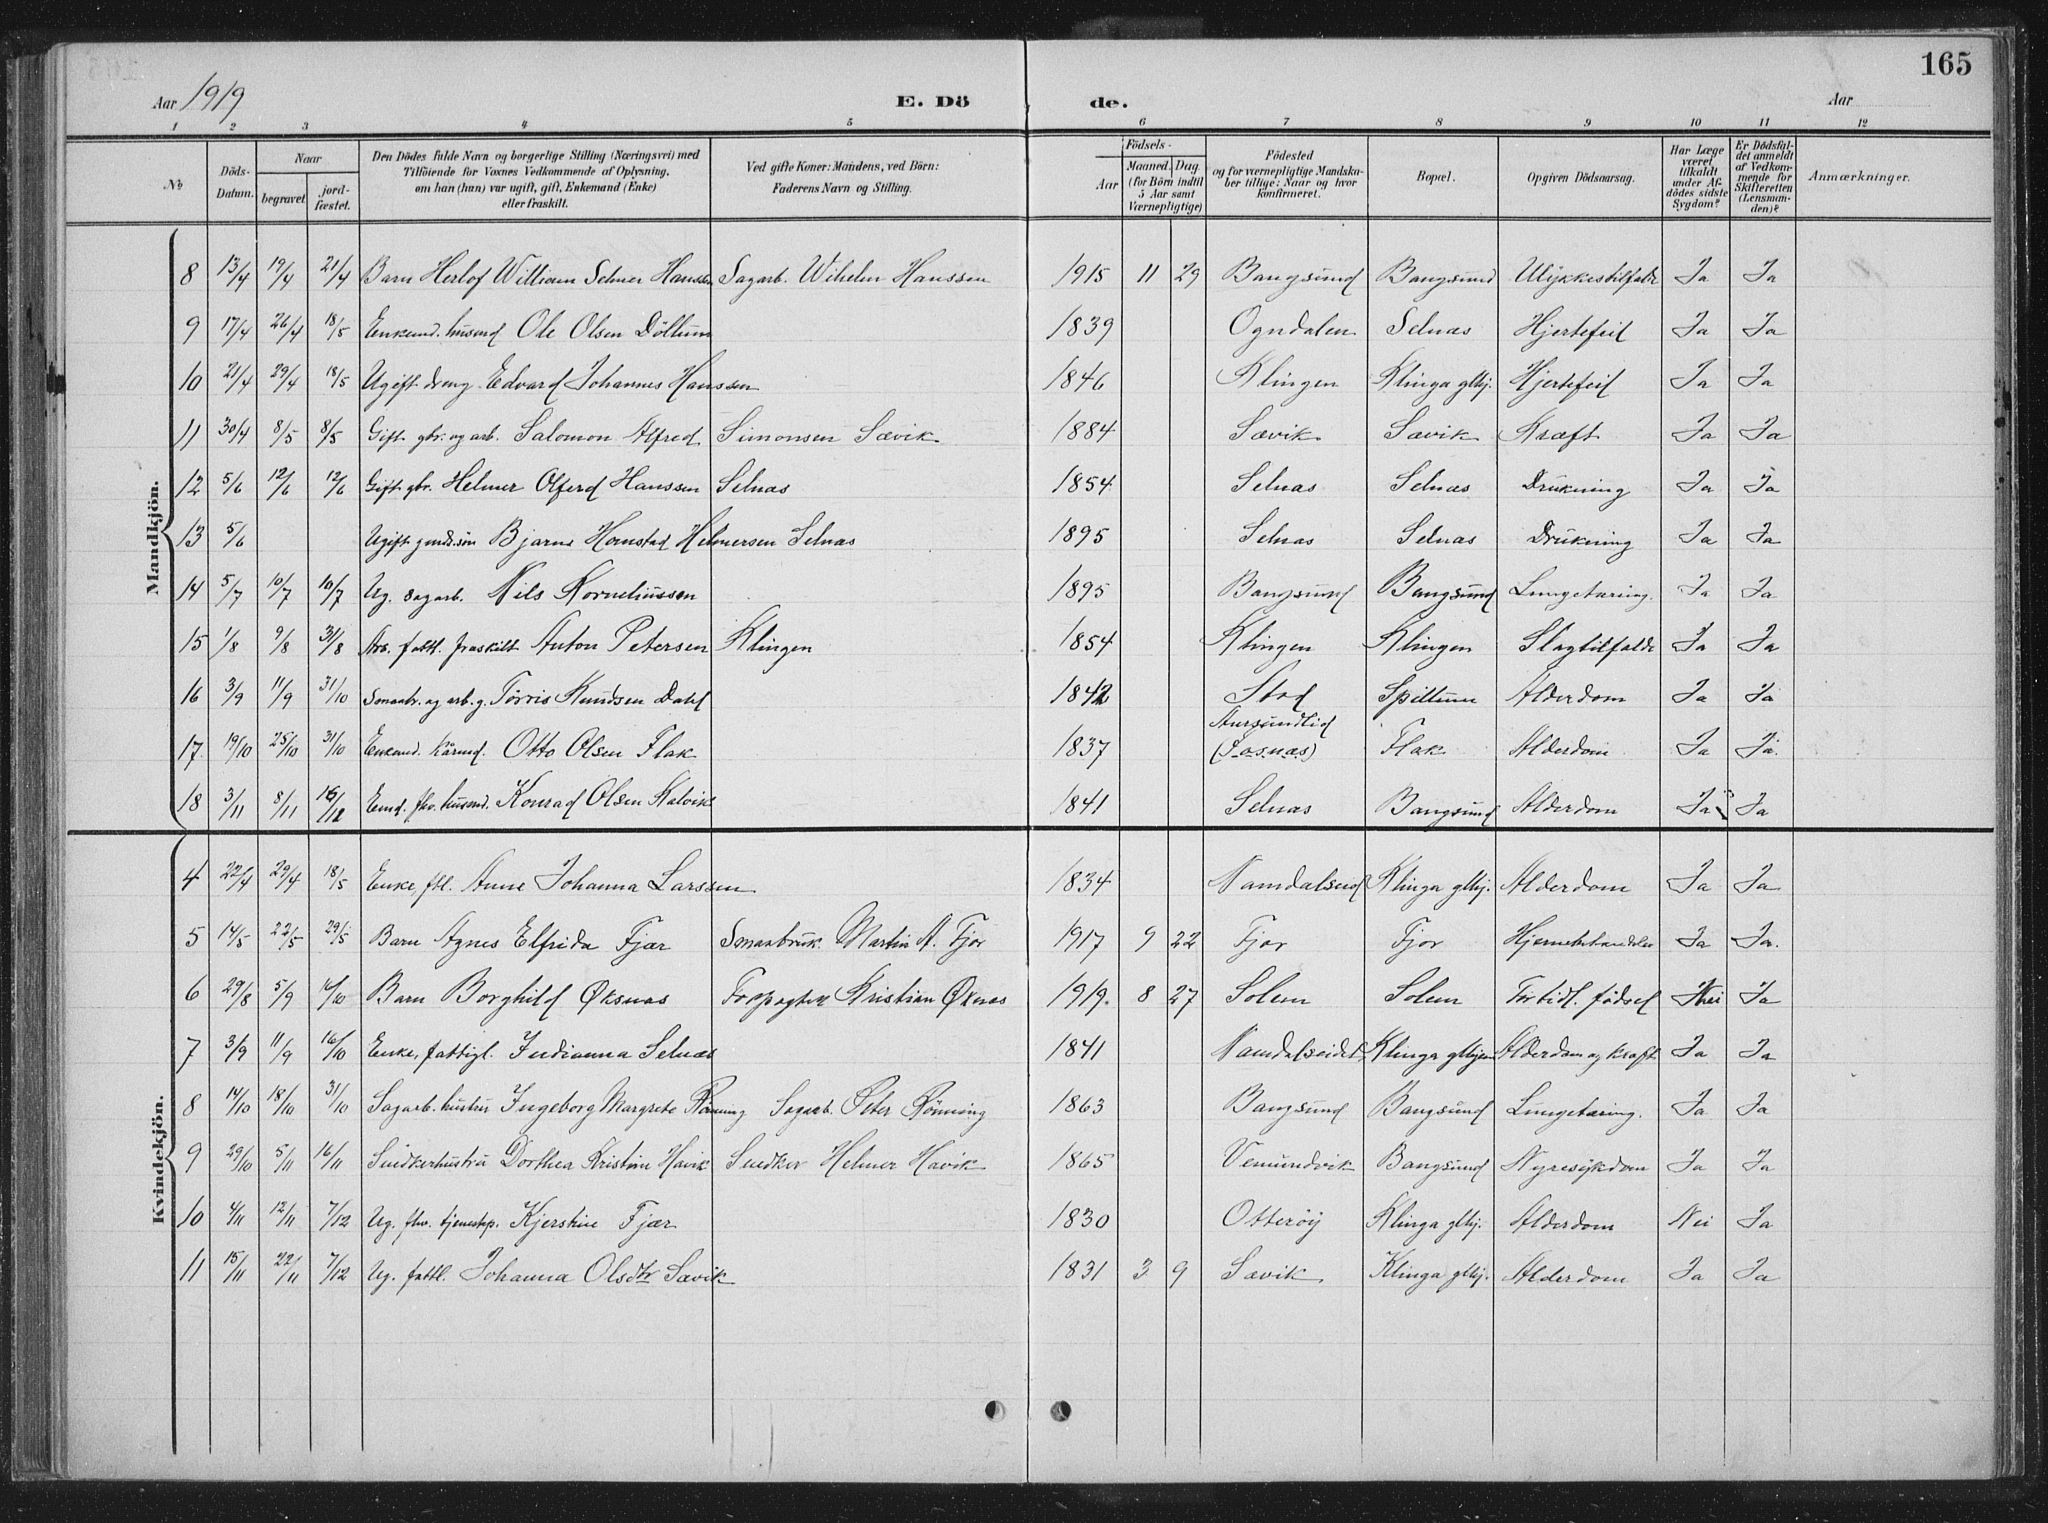 165
Aar 1919 E. Dö de. Aar
1 2 3 4 5 6 7 8 9 10 11 12
№ Döds-Datum. Naar begravet jord-fæstet. Den Dödes fulde Navn og borgerlige Stilling (Næringsvei) med Tilföiende for Voxnes Vedkommende af Oplysning, om han (hun) var ugift, gift, Enkemand (Enke) eller fraskilt. Ved gifte Koner: Mandens, ved Börn: Faderens Navn og Stilling. Födsels- Aar Maaned. Dag. (for Börn indtil 5 Aar samt Værnepligtige) Födested og for værnepligtige Mandskaber tillige: Naar og hvor konfirmeret. Bopæl. Opgiven Dödsaarsag. Har Læge været tilkaldt under Afdödes sidste Sygdom? Er Dödsfaldet anmeldt af Vedkommende for Skifteretten (Lensmanden)? Anmærkninger.
Mandkjön.
8 13/4 19/4 21/4 Barn Herlof William Selmer Hanssen Sagarb. Wilhelm Hanssen 1915 11 29 Bangsund Bangsund Ulykkestilfælde Ja Ja
9 17/4 26/4 18/5 Enkemd. husmd Ole Olsen Döllum 1839 Ogndalen Selnæs Hjertefeil Ja Ja
10 21/4 29/4 18/5 Ugift dreng Edvard Johannes Hanssen 1846 Klingen Klinga glhj. Hjertefeil Ja Ja
11 30/4 8/5 8/5 Gift gbr. og arb. Salomon Alfred Simonsen Sævik 1884 Sævik Sævik Kræft Ja Ja
12 5/6 12/6 12/6 Gift gbr. Helmer Olferd Hanssen Selnæs 1854 Selnæs Selnæs Drukning Ja Ja
13 5/6 Ugift gmds.søn Bjarne Hornstad Helmersen Selnæs 1895 Selnæs Selnæs Drukning Ja Ja
14 5/7 10/7 10/7 Ug. sagarb. Nils Korneliussen 1895 Bangsund Bangsund Lungetæring. Ja Ja
15 1/8 9/8 31/8 Arb. fattl. fraskilt Anton Petersen Klingen 1854 Klingen Klingen Slagtilfælde Ja Ja
16 3/9 11/9 31/10 Smaabr. og arb. g. Tørris Knudsen Dahl 1842 Stod Spillum Alderdom Ja Ja
17 19/10 25/10 31/10 Enkemd. kårmd. Otto Olsen Flak 1837 Aursundlid (Fosnæs) Flak Alderdom Ja Ja.
18 3/11 8/11 16/12 Emd. fhv. husmd. Konrad Olsen Kalvik 1841 Selnæs Bangsund Alderdom Ja Ja
Kvindekjön.
4 22/4 29/4 18/5 Enke, ftl. Anne Johanna Larssen 1834 Namdalseid Klinga glhj. Alderdom Ja Ja
5 14/5 22/5 29/5 Barn Agnes Elfrida Fjær Smaabruk. Martin A. Fjær 1917 9 22 Fjær Fjær Ja Ja.
6 29/8 5/9 16/10 Barn Borghild Øksnæs Forpagter Kristian Øksnæs 1919. 8 27 Solem Solem Førtidl. fødsel Nei Ja
7 3/9 11/9 16/10 Enke, fattigl. Indianna Selnæs 1841 Namdalseidet Klinga glhjem Alderdom og kræft Ja Ja
8 14/10 18/10 31/10 Sagarb. hustru Ingeborg Margrete Rönning Sagarb. Peter Rönning 1863 Bangsund Bangsund Lungetæring. Ja Ja
9 29/10 5/11 16/11 Snedkerhustru Dorthea Kristine Havik Snedker Helmer Havik 1865 Vemundvik Bangsund Nyresykdom Ja Ja
10 4/11 12/11 7/12 Ug. fhv. tjenestep. Kjerstine Fjær 1830 Otterøy Klinga glhj. Alderdom Nei Ja
11 15/11 22/11 7/12 Ug. fattl. Johanna Olsdtr Sævik 1831 3 9 Sævik Klinga glhj. Alderdom Ja Ja